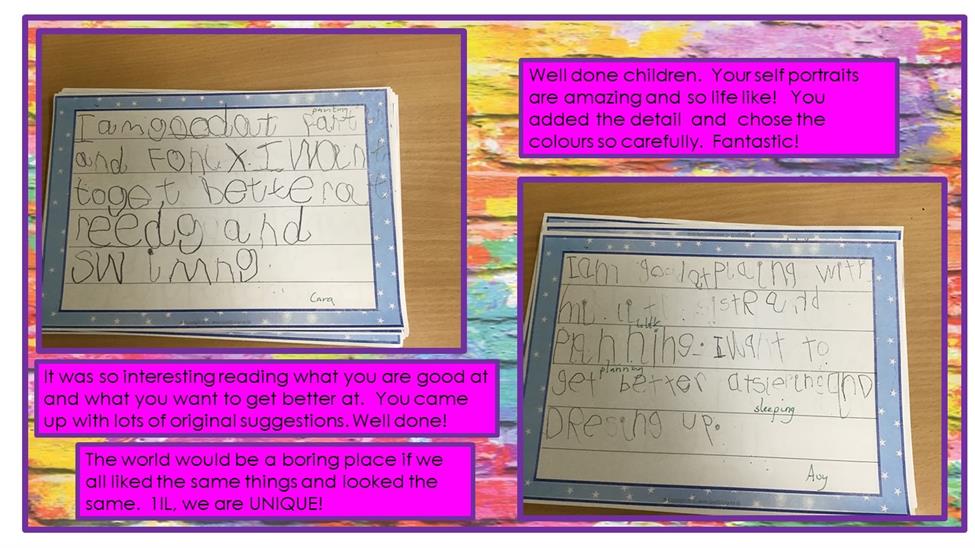 painting
I am good at pant
and FONiX. I Want
to get better at
reedg and
SWimnng.
Cara
Well done children. Your self portraits
are amazing and so life like! You
added the detail and chose the
colours so carefully. Fantastic!
It was so interesting reading what you are good at
and what you want to get better at. You came
up with lots of original suggestions. Well done!
The world would be a boring place if we
all liked the same things and looked the
same. 1IL, we are UNIQUE!
I am good at placing with
mi sistR and
Planning. I Want to
planning
get better at and
sleeping
DResing up.